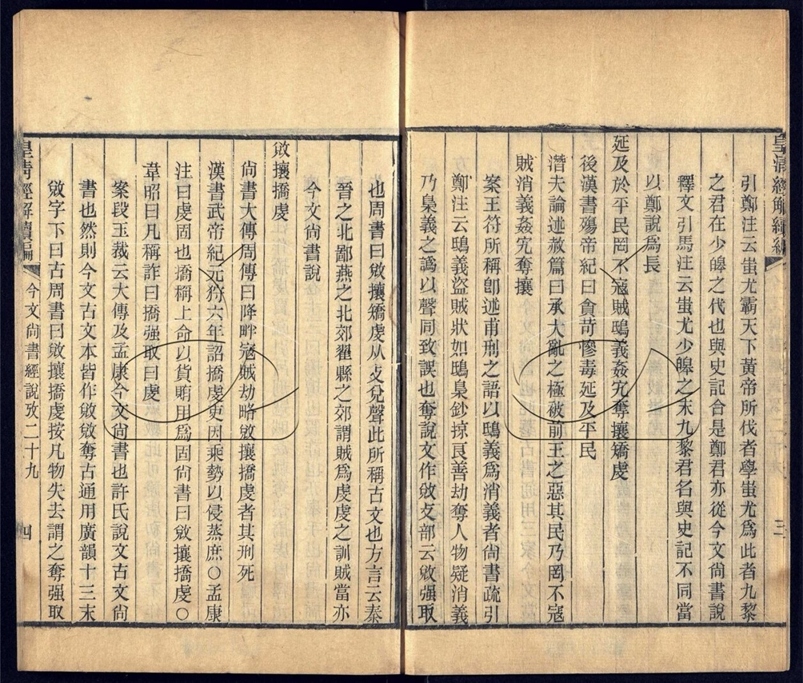 皇清經解續編
三
引鄭注云蚩尤霸天下黃帝所伐者學蚩尤爲此者九黎
之君在少皞之代也與史記合是鄭君亦從今文尚書說
釋文引馬注云蚩尤少皞之末九黎君名與史記不同當
以鄭說爲長
延及於平民罔不寇賊鴟義姦宄奪攘矯虔
後漢書殤帝紀曰貪苛慘毒延及平民
潛夫論述赦篇曰承大亂之極被前王之惡其民乃罔不寇
賊消義姦宄奪攘
案王符所稱卽述甫刑之語以鴟義爲消義者尚書疏引
鄭注云鴟義盜賊狀如鴟梟鈔掠良善劫奪人物疑消義
乃梟義之譌以聲同致誤也奪說文作敓攴部云敓彊取
也周書曰敓攘矯虔从攴兌聲此所稱古文也方言云秦
晉之北鄙燕之北郊翟縣之郊謂賊爲虔虔之訓賊當亦
今文尚書說
敓攘撟虔
尚書大傳周傳曰降畔寇賊劫略敓攘撟虔者其刑死
漢書武帝紀元狩六年詔撟虔吏因乘勢以侵蒸庶○孟康
注曰虔固也撟稱上命以貨賄用爲固尚書曰敓攘撟虔○
韋昭曰凡稱詐曰撟强取曰虔
案段玉裁云大傳及孟康今文尚書也許氏說文古文尚
書也然則今文古文本皆作敓敓奪古通用廣韻十三末
敓字下曰古周書曰敓攘撟虔按凡物失去謂之奪强取
皇清經解續編
今文尚書經說攷二十九
四